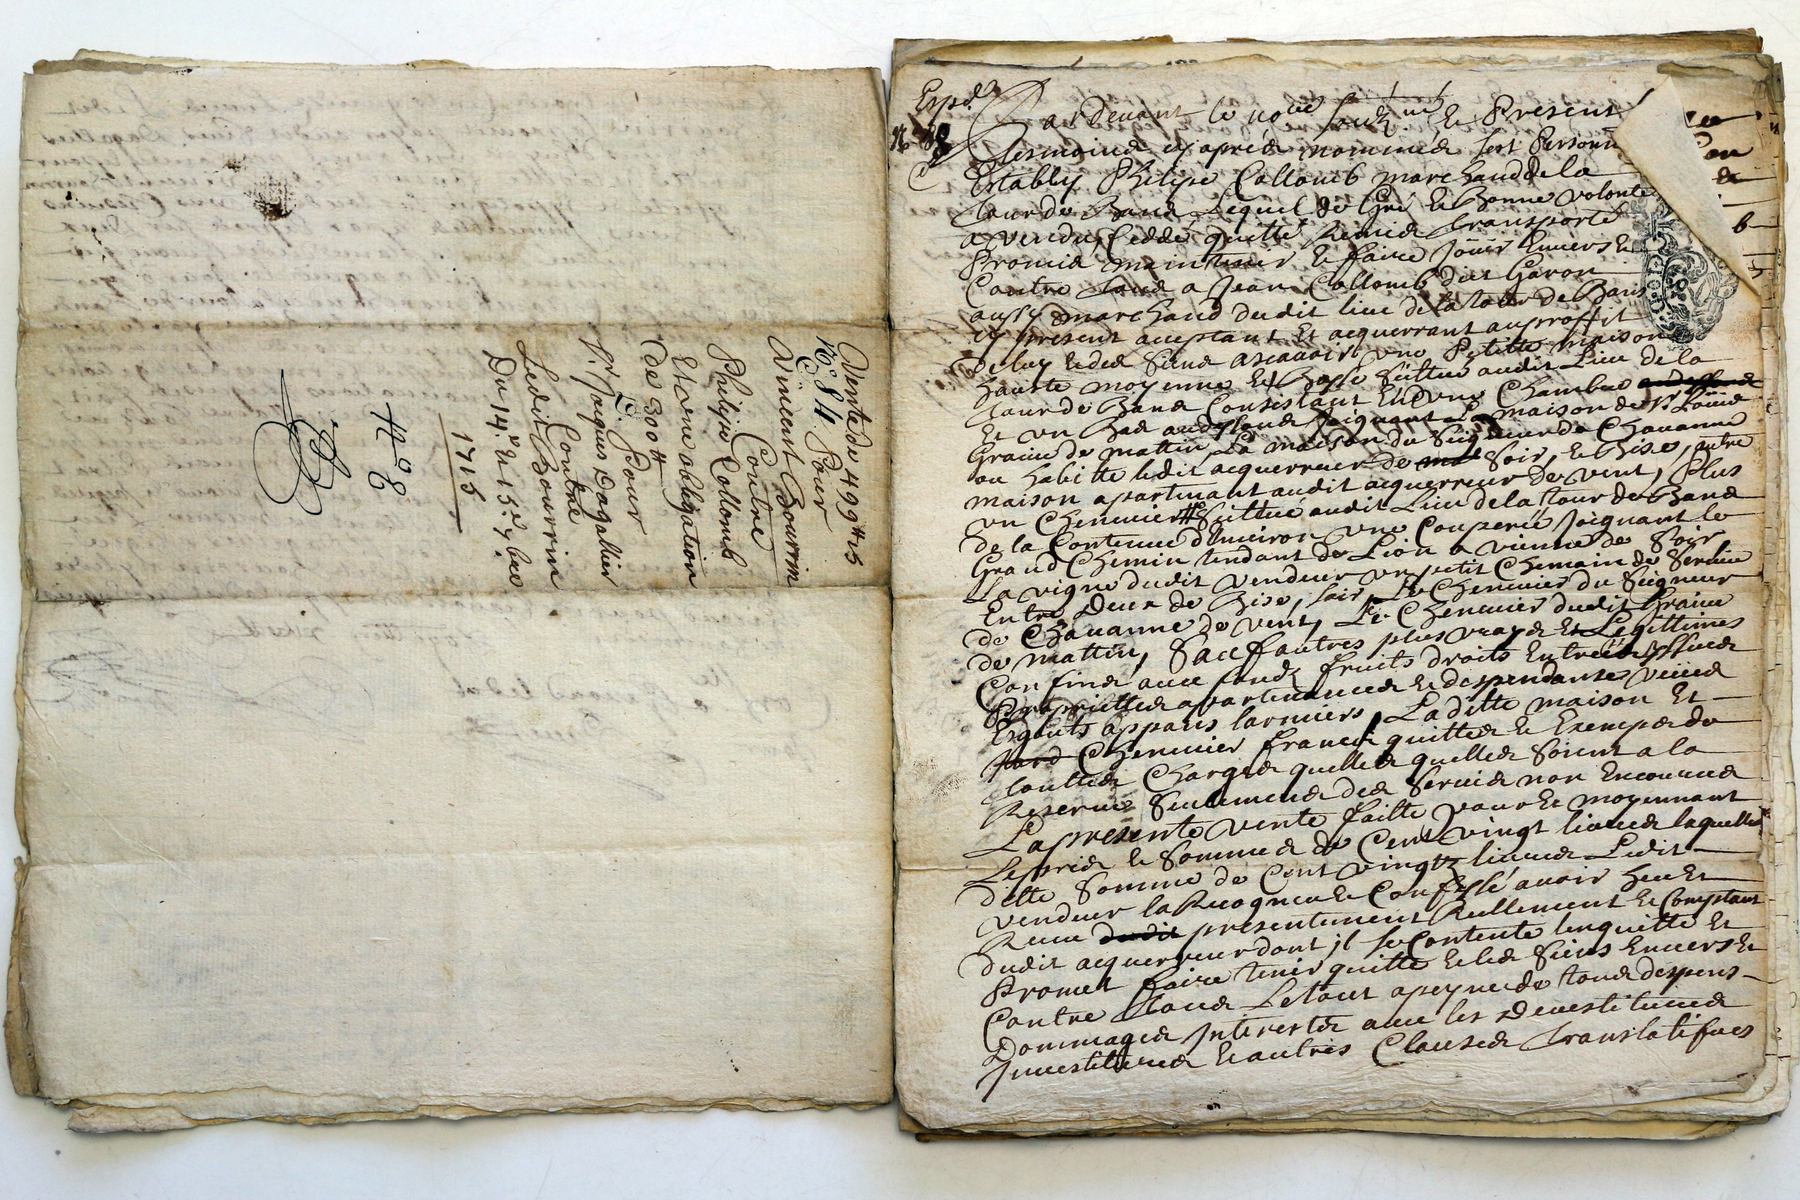 Vente de 499# 15
N° 84 Pour
Vincent Bourrin
Contre
Philipe Collomb
Et vne obligation
De 300#
Pour
Sr. Jaques Dagallier
Contre
Ledit Bourrin
Du 14e. et 15e. 9bre
1715
N° 8
Expd.
Pardevant le no.re soub.né Et Present
Tesmoins cy aprés nommés fut Personn
Estably Philipe Collomb marchand de la
tour de Band Lequel de Gré Et Bonne volonté
a vendu, Ceddé quitté Remis transporté
Promis maintenir Et faire Joüir Enuers Et
Contre tous a Jean Collomb dit Garon
aussy marchand dudit lieu de la tour de Bans
cy present acceptant Et acquerrant au proffit
de luy Et des Siens ascauoir vne Petitte maison
haute moyenne Et Basse Sittue audit Lieu de la
tour de Band Consistant En vne Chambre
Et vn Bas au dessoud Joignant la maison de Sr Loüis
Graine de mattin, La maison du Seigneur de Chauanne
ou habitte ledit acquerreur de Soir, Et Bise, autre
maison apartenant audit acquerreur de vent, Plus
vn Chenuier Sittué audit Lieu de la tour de Band
de la Contenue d'enuiron vne Couperée Joignant le
Grand Chemin tendant de Lion a vienne de Soir
La vigne dudit vendeur vn petit Chemain de Seruice
Entre Deux de Bise, Le Chenuier du Seigneur
de Chauanne de vent, Le Chenuier dudit Graine
de mattin, Sauf autres plus vrays Et Legittimes
Confins auec fonds fruits droits Entrées yssues
Proprietes apartenances Et despendanses veües
Esgouts appans larmiers, Laditte maison Et
Chenuier francs quittes Et Exempts de
touttes Charges quelles quelles Soient a la
Reserue Seulement des Seruis non Encourus
La presente vente faitte Pour Et moyennant
Le prix Et Somme de Cent vingt liures laquelle
ditte Somme de Cent vingt liures Ledit
vendeur la Recogneu Et Confessé auoir heu Et
Receu presentement Reellement Et Comptant
dudit acquerreur dont il se Contente lenquitte Et
Promet faire tenir quitte Et les Siens Enuers Et
Contre tous Le tout a peyne de tous despens
Dommages Interestes auec les Deuestitures
Inuestitures Et autres Clauses translatifues